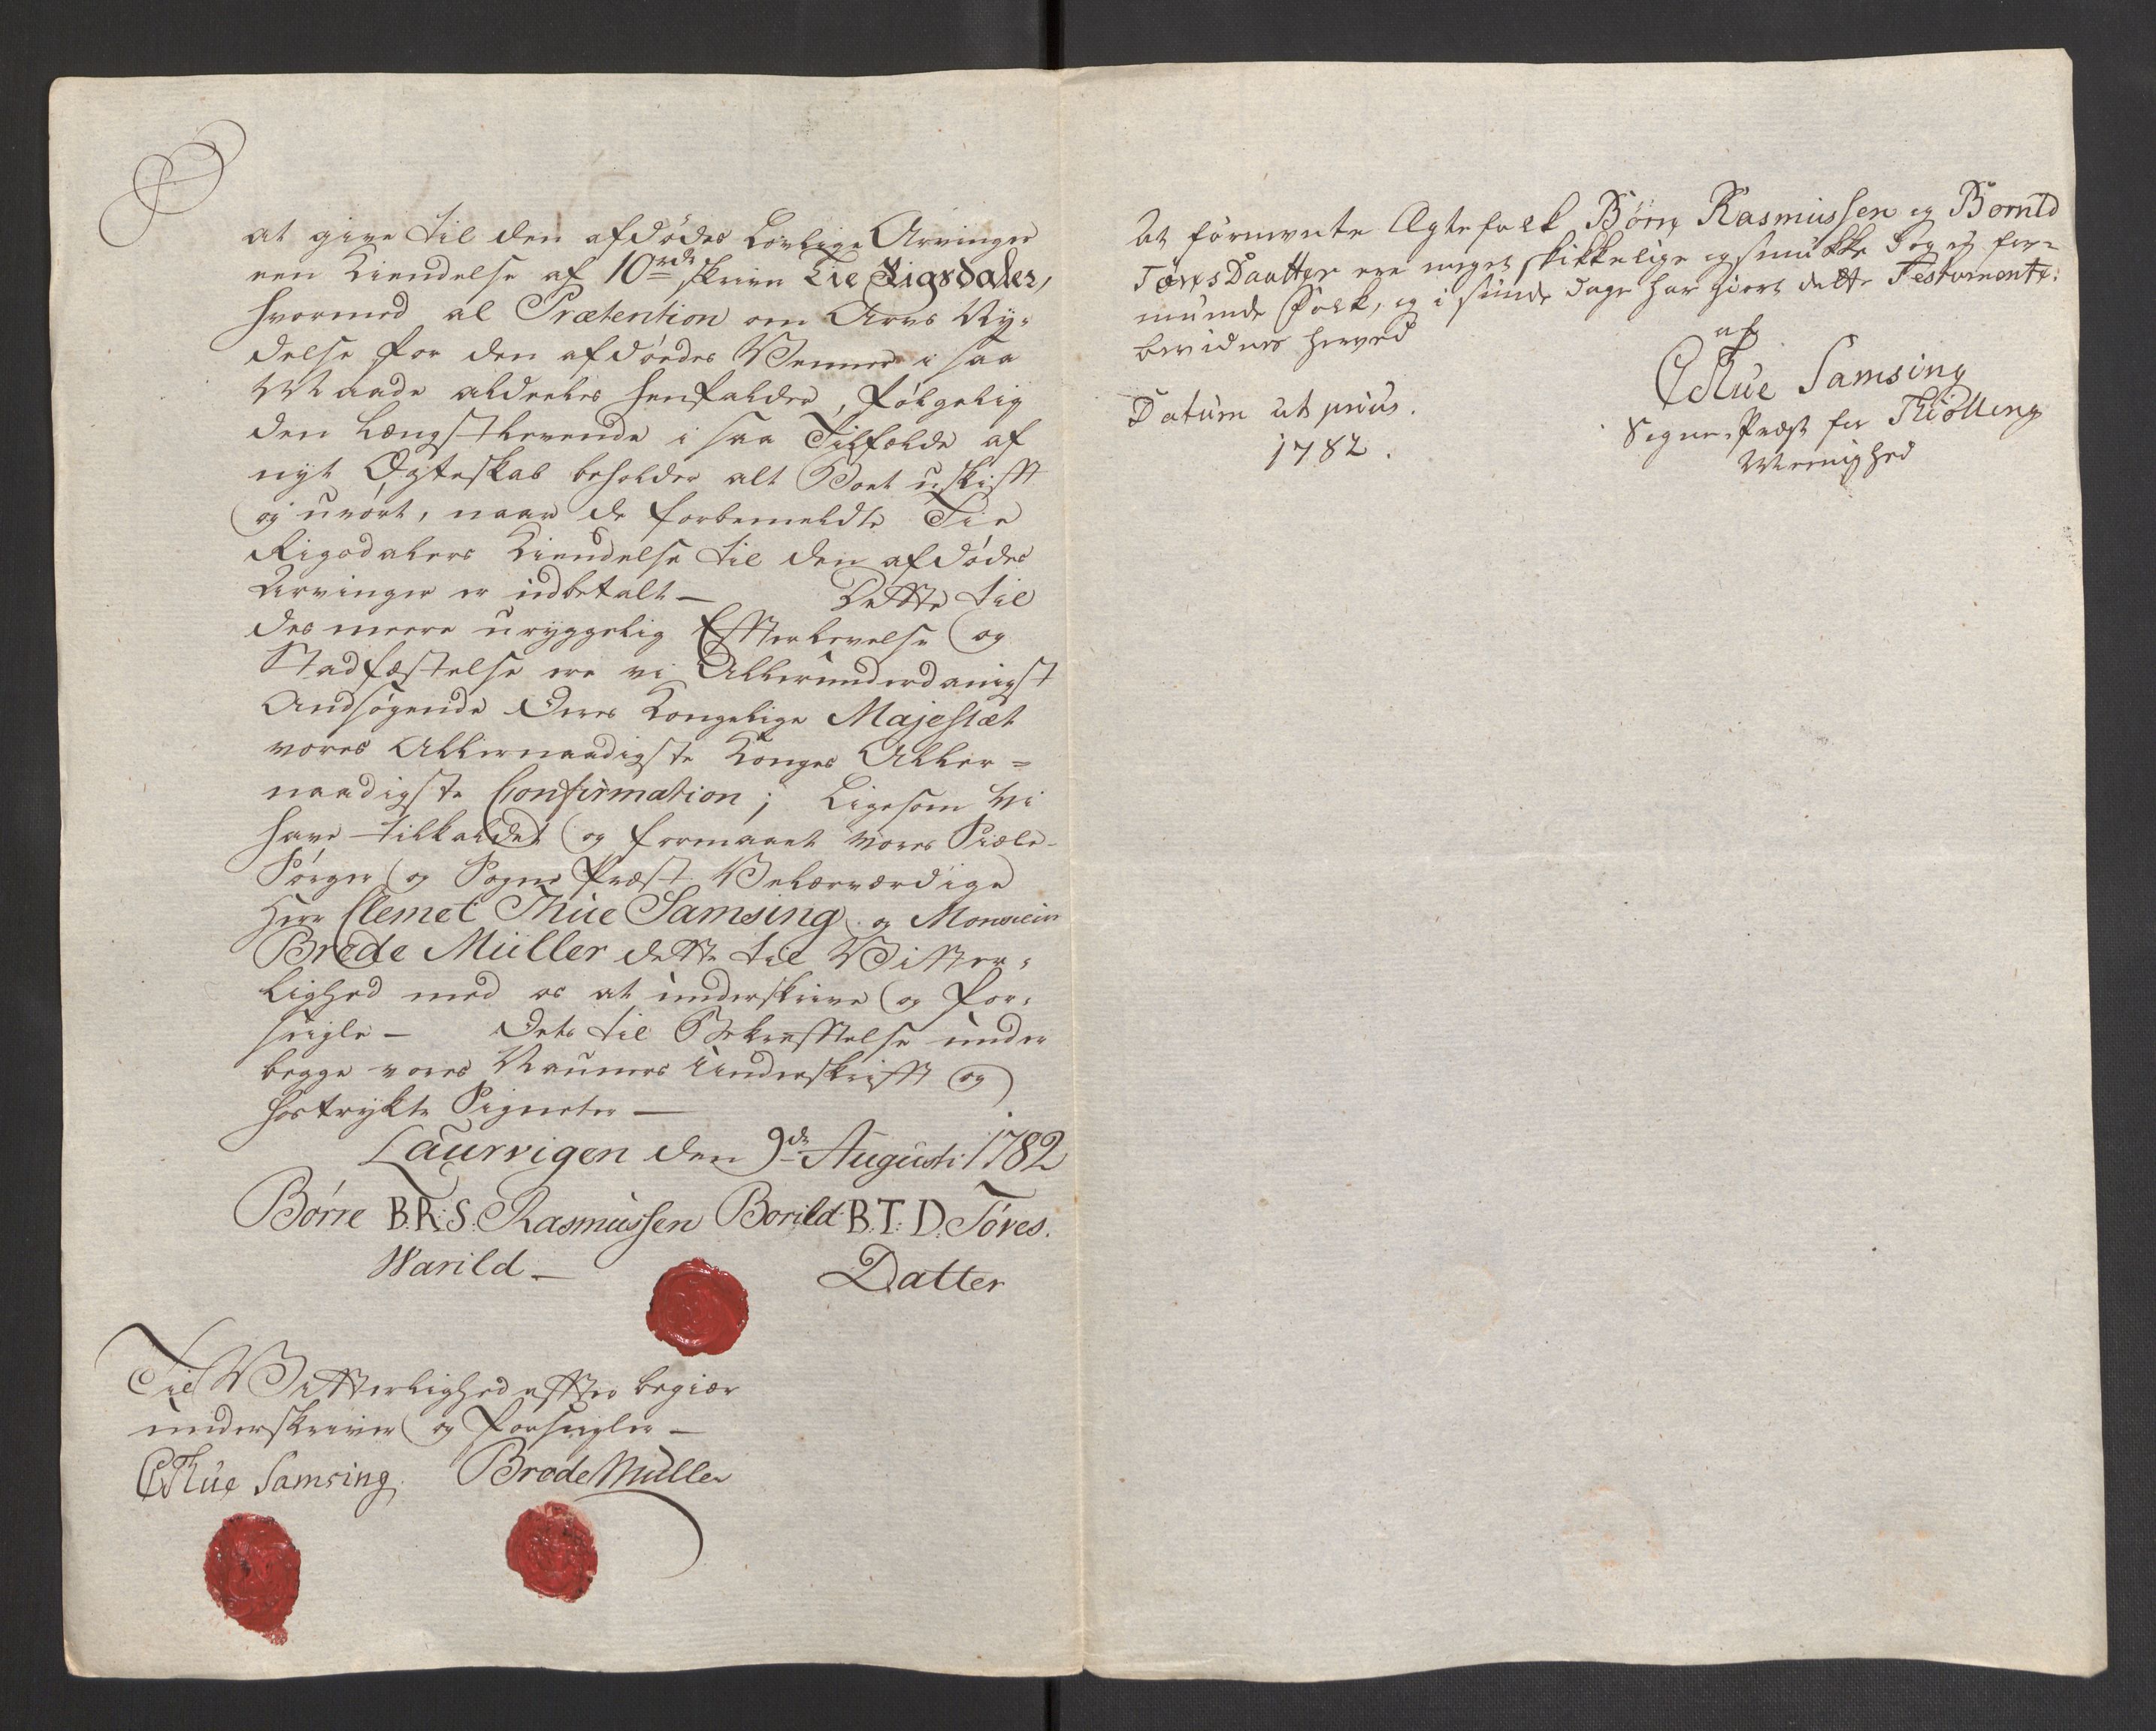 at give til den afdödes Lovlige Arvinger
een Kiendelse af 10 rdr skrive Tie Rigsdaler,
hvormed al Prætention om Arvs Ny-
delse for den afdöedes Venner i saa
Maade aldeeles henfalder, fölgelig
den Længstlevende i saa Tilfælde af
nyt Ægteskab beholder alt Boet uskifft
og urört, naar de forbemeldte Tie
Rigsdalers Kiendelse til den afdödes
Arvinger er udbetalt — Dette til
des meere uryggelig Effterlevelse og
Stadfæstelse ere vi Allerunderdanigst
Andsögende Deres Kongelige Majestæt
vores Allernaadigste Konges Aller-
naadigste Confirmation; Ligesom Vi
have tilkaldet og formaaet vores Siæle-
Sörger og Sogne Præst Velærværdige
Herr Clemet Thue Samsing og Monsieur
Brede Müller dette til Vitter-
lighed med os at underskrive og for-
seigle — Dets til Bekrefftelse under
begge vores Naunes Underskrifft og
hostrykte Signeter —
Laurvigen den 9de Augusti 1782
Börre B.R.S. Rasmussen Borild B.T.D. Töres.
Warild — Datter
Til Vitterlighed effter begiær
underskriver og forseigler —
CThue Samsing. Brede Müller
At fornevnte Ægtefolk Börre Rasmussen og Borrild
Törrs Daatter ere meget skikkelige og smukke Sog og for-
munde Folk, og i sunde dage har giort dette Testamente:
bevidnes herved
af
CThue Samsing
Datum ut prius. Sogne-Præst for Thiölling
1782. Meenighed